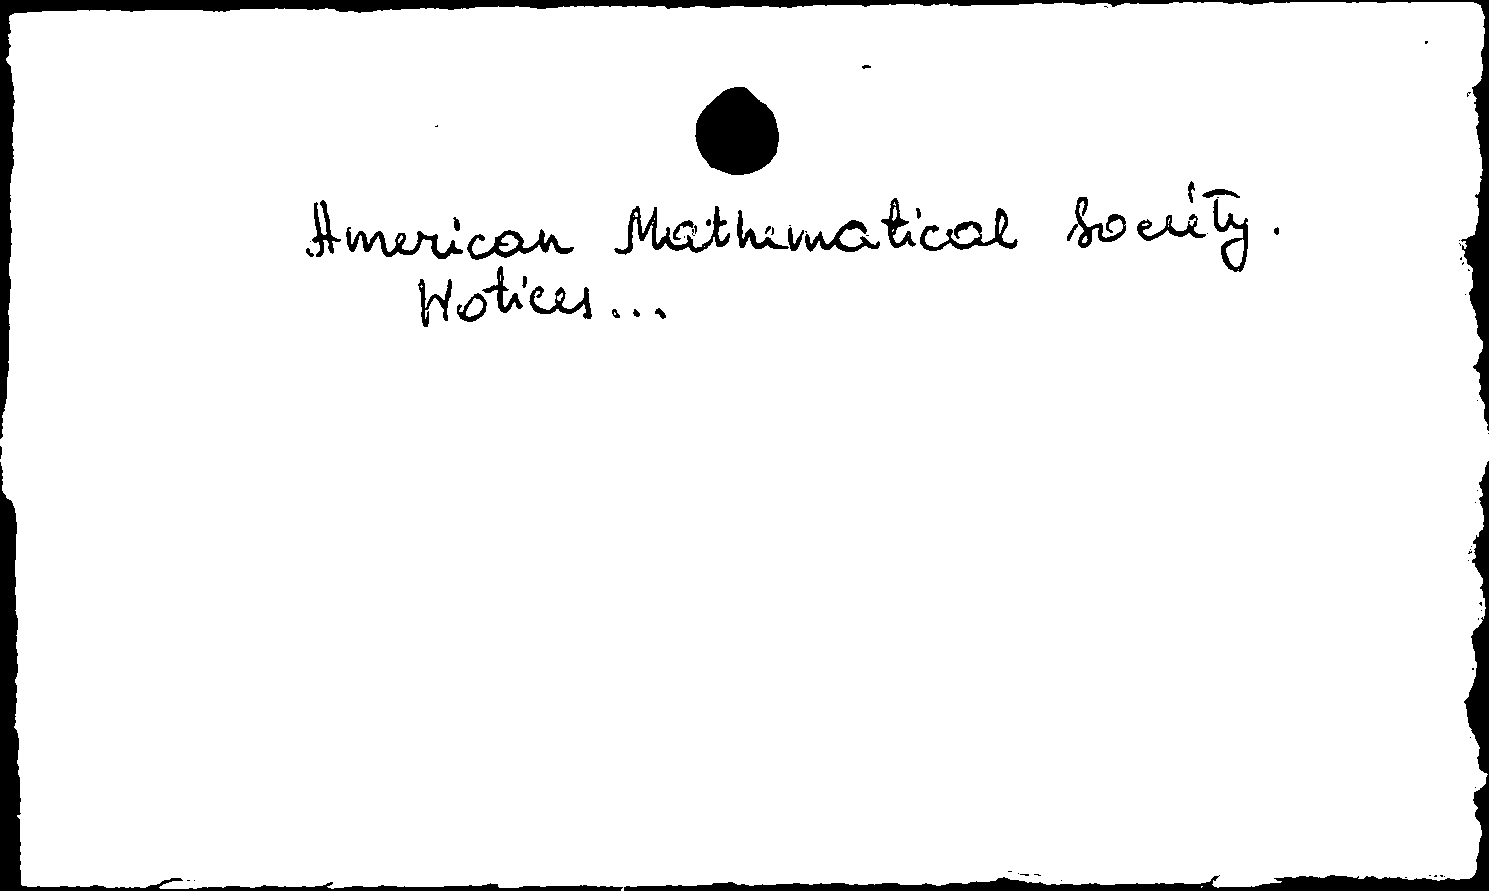 American Mathematical Society.
Notices...